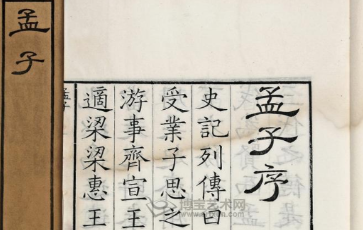 孟子
孟子序
史記列傳曰
受業子思之
游事齊宣王
適梁梁惠王
博宝艺术网